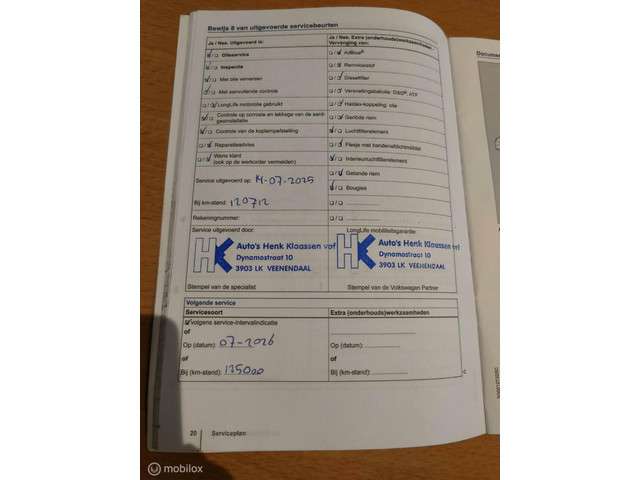 Bewijs 8 van uitgevoerde servicebeurten
Ja / Nee. Uitgevoerd is:
Ja / Nee. Extra (onderhouds)werkzaamheden
Vervanging van:
Olieservice
AdBlue®
Inspectie
Remvloeistof
Met olie verversen
Dieselfilter
Met aanvullende controle
Versnellingsbakolie: DSG®, ATF
LongLife motorolie gebruikt
Haldex-koppeling: olie
Controle op corrosie en lekkage van de airco-
Geribde riem
Controle van de koplampafstelling
Luchtfilterelement
Reparatieadvies
Flesje met bandenafdichtmiddel
Wens klant
(ook op de werkorder vermelden)
Interieurluchtfilterelement
Getande riem
Service uitgevoerd op: 14-07-2025
Bougies
Bij km-stand: 120712
Rekeningnummer:
Service uitgevoerd door:
LongLife mobiliteitsgarantie:
HK Auto's Henk Klaassen vof
Dynamostraat 10
3903 LK VEENENDAAL
HK Auto's Henk Klaassen vof
Dynamostraat 10
3903 LK VEENENDAAL
Stempel van de specialist
Stempel van de Volkswagen Partner
Volgende service
Servicesoort
Extra (onderhouds)werkzaamheden
Volgens service-intervalindicatie
of
Op (datum): 07-2026
of
Bij (km-stand): 135000
of
Op (datum):
of
Bij (km-stand):
20
Serviceplan
Documen
mobilox